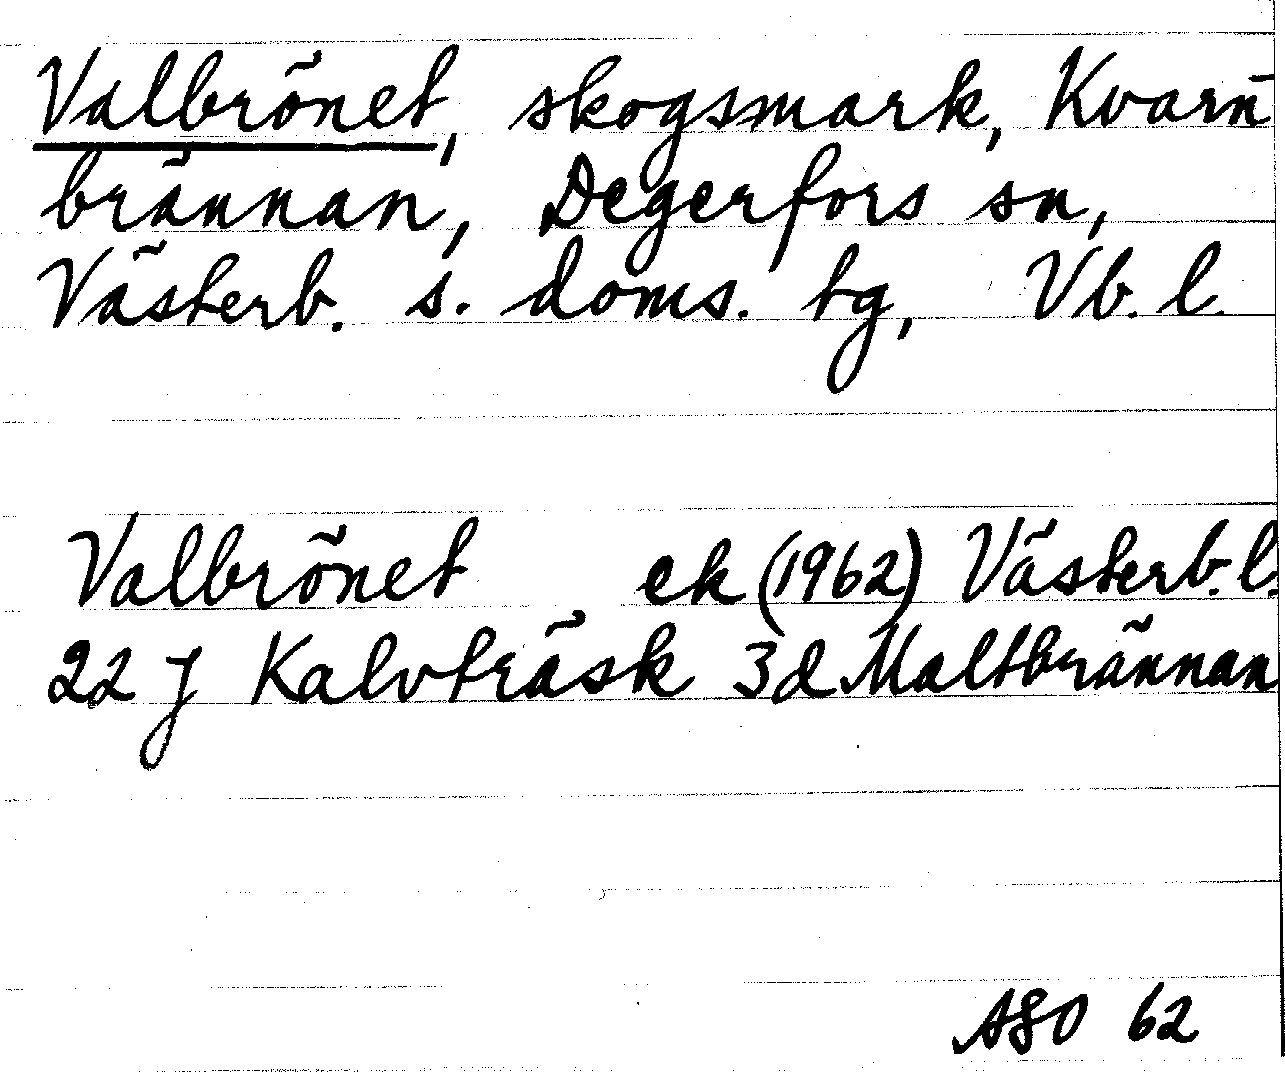 Valbrönet, skogsmark, Kvarn-
brännan, Degerfors sn,
Västerb. s. doms. tg, Vb. l.
Valbrönet ek (1962) Västerb. l.
22 J Kalvträsk 3d Maltbrännan
ASO 62